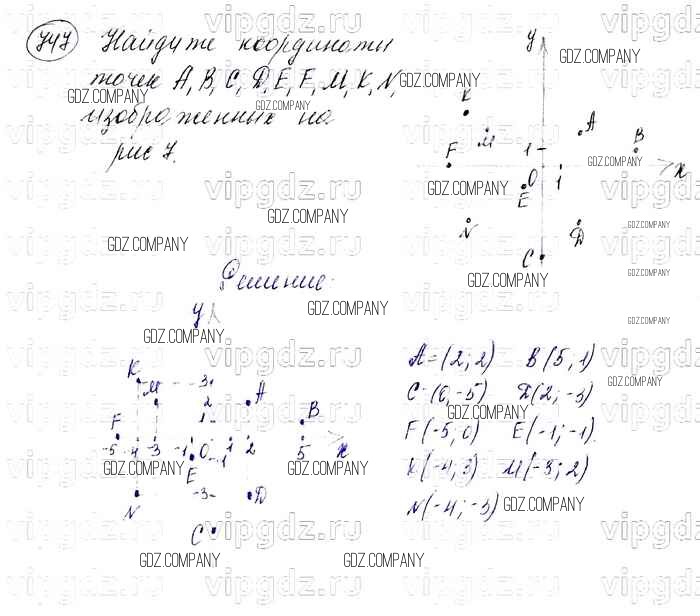 747 Найдите координаты
точек A, B, C, D, E, F, M, K, N,
изображенных на
рис 7.
y
K
A
M
B
F
1
0
1
x
E
N
D
C
Решение:
y
K
M
-3
2
A
F
1
B
-5 -4 -3 -1 0 1 2 5 x
-1
E
-3
N
D
C
A=(2; 2) B(5, 1)
C(0, -5) D(2; -3)
F(-5, 0) E(-1; -1).
K(-4, 3) M(-3; 2)
N(-4; -3)
vipgdz.ru
GDZ.COMPANY